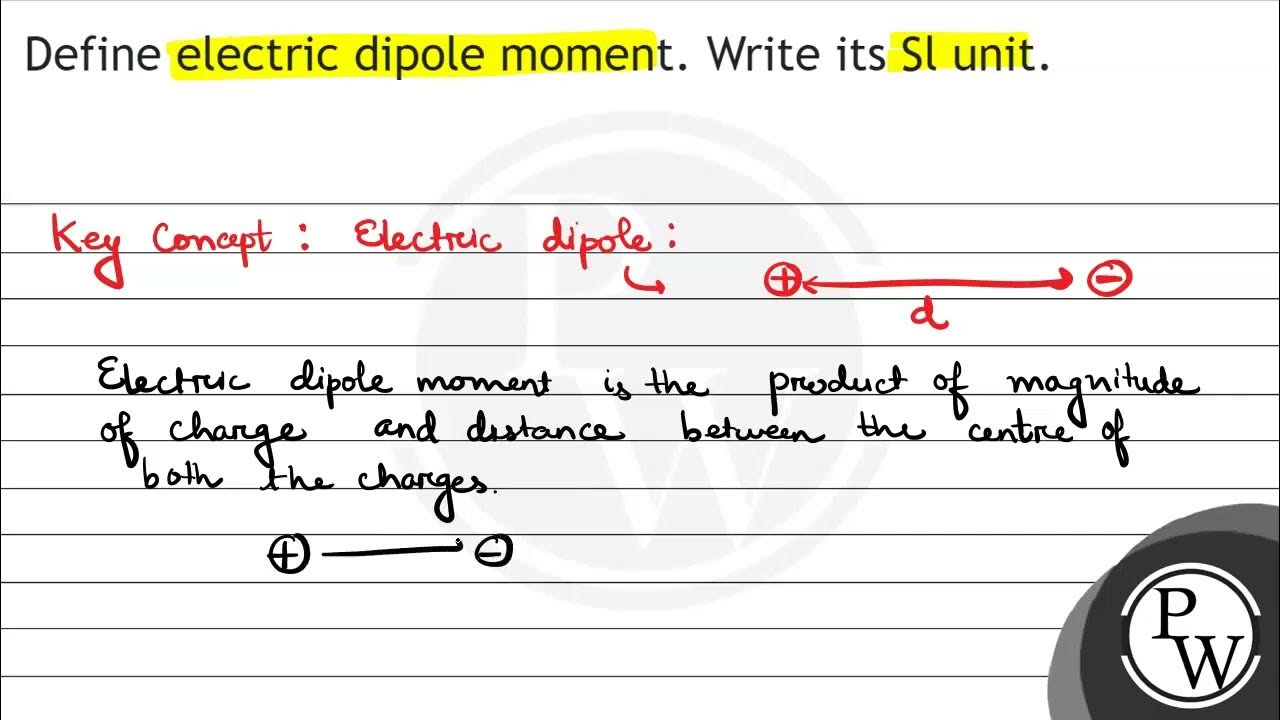 Define electric dipole moment. Write its Sl unit.
Key Concept : Electric dipole :
+ -
d
Electric dipole moment is the product of magnitude
of charge and distance between the centre of
both the charges.
+ -
PW
PW